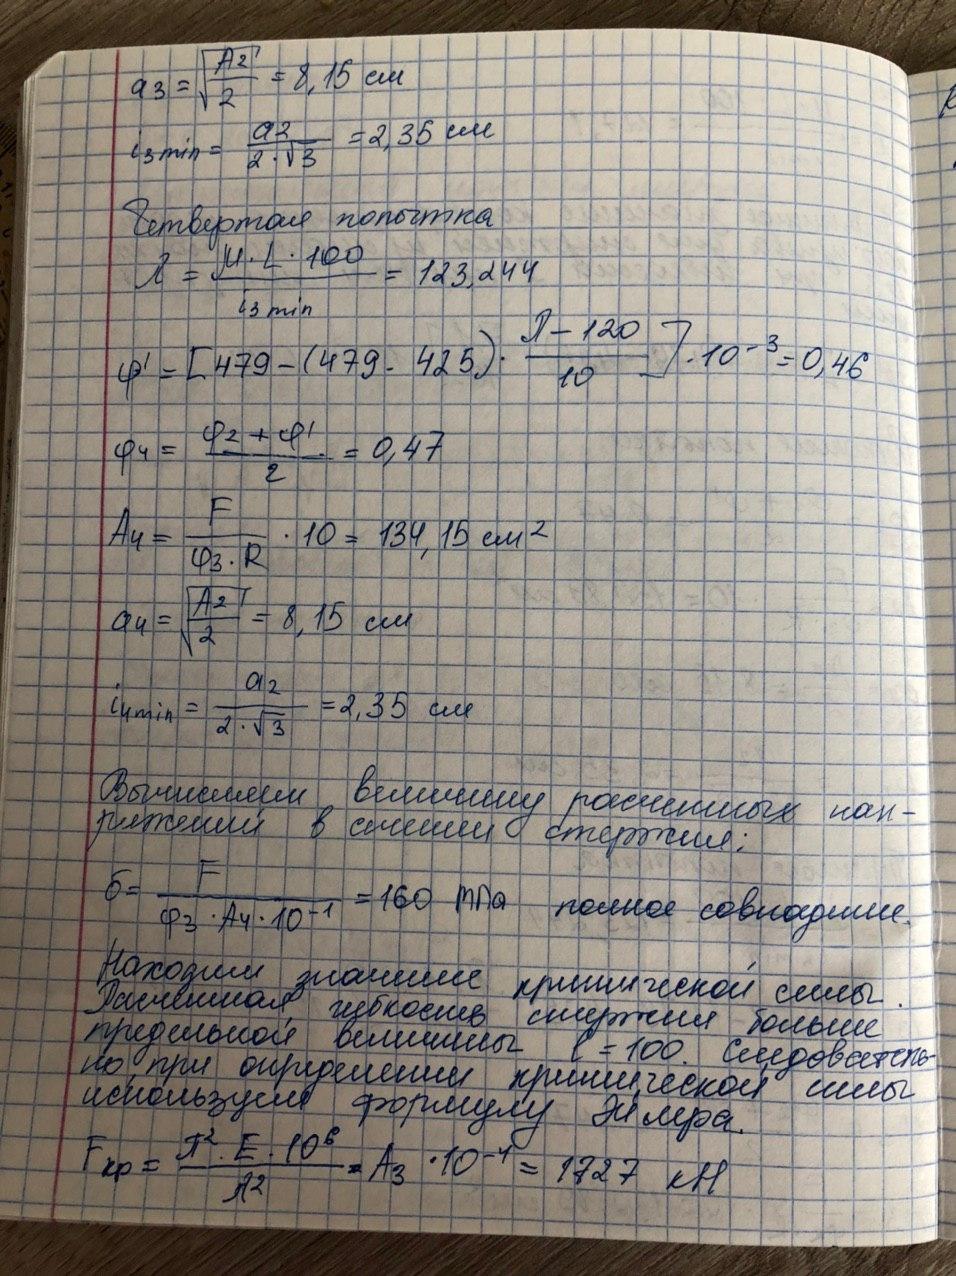 a3 = √(A2/2) = 8,15 см
i3min = a2/(2·√3) = 2,35 см
Четвертая попытка
λ = (μ·L·100)/i3min = 123,244
φ' = [479-(479-425)·(λ-120)/10]·10^-3 = 0,46
φ4 = (φ2+φ')/2 = 0,47
A4 = F/(φ3·R)·10 = 134,15 см²
a4 = √(A2/2) = 8,15 см
i4min = a2/(2·√3) = 2,35 см
Вычислим величину расчетных нап-
ряжений в сечении стержня:
б = F/(φ3·A4·10^-1) = 160 МПа полное совпадение.
Находим значение критической силы.
Расчетная гибкость стержня больше
предельной величины l = 100. Следователь-
но при определении критической силы
используем формулу Эйлера.
Fкр = (π²·E·10^6)/λ² · A3 · 10^-1 = 1727 кН